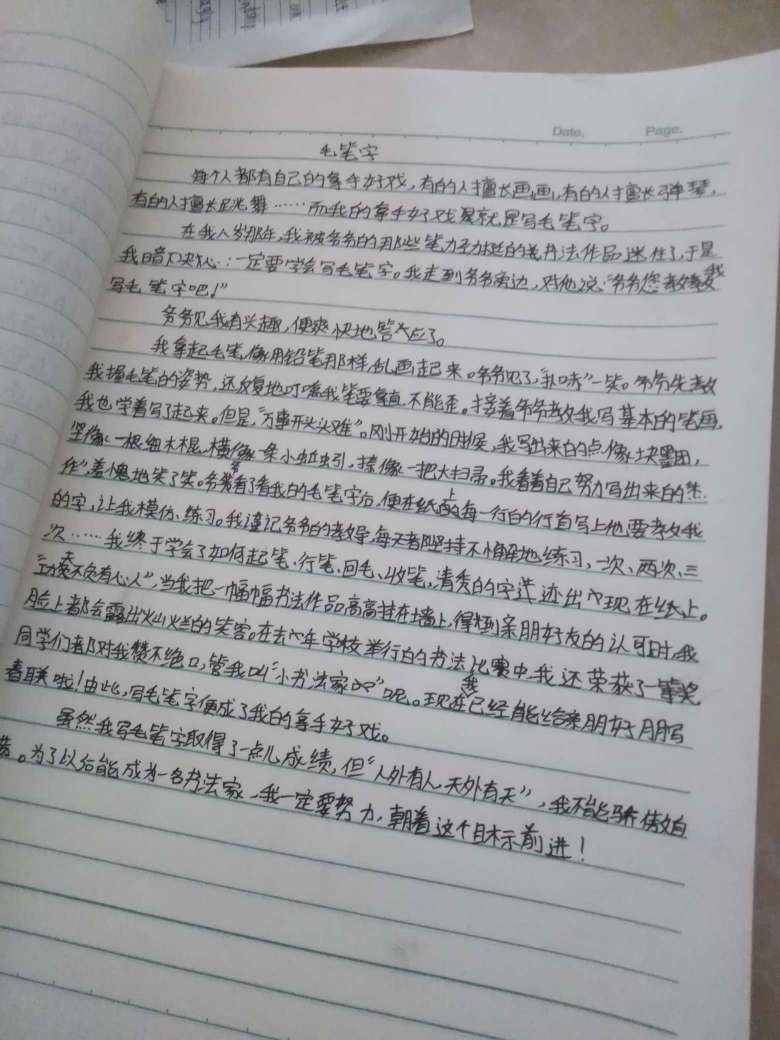 Date.    Page.
毛笔字
每个人都有自己的拿手好戏，有的人擅长画画，有的人擅长弹琴，
有的人擅长跳舞……而我的拿手好戏就是写毛笔字。
在我八岁那年，我被爷爷的那些笔力劲挺的书法作品迷住了，于是
我暗下决心：一定要学会写毛笔字。我走到爷爷旁边，对他说："爷爷您教教我
写毛笔字吧！"
爷爷见我有兴趣，便爽快地答应了。
我拿起毛笔，像用铅笔那样，乱画起来。爷爷见了，"扑哧"一笑。爷爷先教
我握毛笔的姿势，还反复地叮嘱我笔要拿直不能歪。接着爷爷教我写基本的笔画，
我也学着写了起来。但是，"万事开头难"。刚开始的时候，我写出来的点像土块墨团，
竖像一根细木棍，横像一条小蚯蚓，捺像一把大扫帚。我看着自己努力写出来的"杰
作"，羞愧地笑了笑。爷爷看了看我的毛笔字后，便在纸上的每一行的行首写上他要教我
的字，让我模仿、练习。我谨记爷爷的教导，每天都坚持不懈地练习，一次、两次、三
次……我终于学会了如何起笔、行笔、回毛、收笔，清秀的字迹出现在纸上。
"功夫不负有心人"，当我把一幅幅书法作品高高挂在墙上，得到亲朋好友的认可时，我
脸上都会露出灿烂的笑容。在去年学校举行的书法比赛中，我还荣获了一等奖
同学们都对我赞不绝口，管我叫"小书法家"呢。现在我已经能给亲朋好朋写
春联啦！由此，写毛笔字便成了我的拿手好戏。
虽然我写毛笔字取得了一点儿成绩，但"人外有人，天外有天"，我不能骄傲自
。为了以后能成为一名书法家，我一定要努力，朝着这个目标前进！